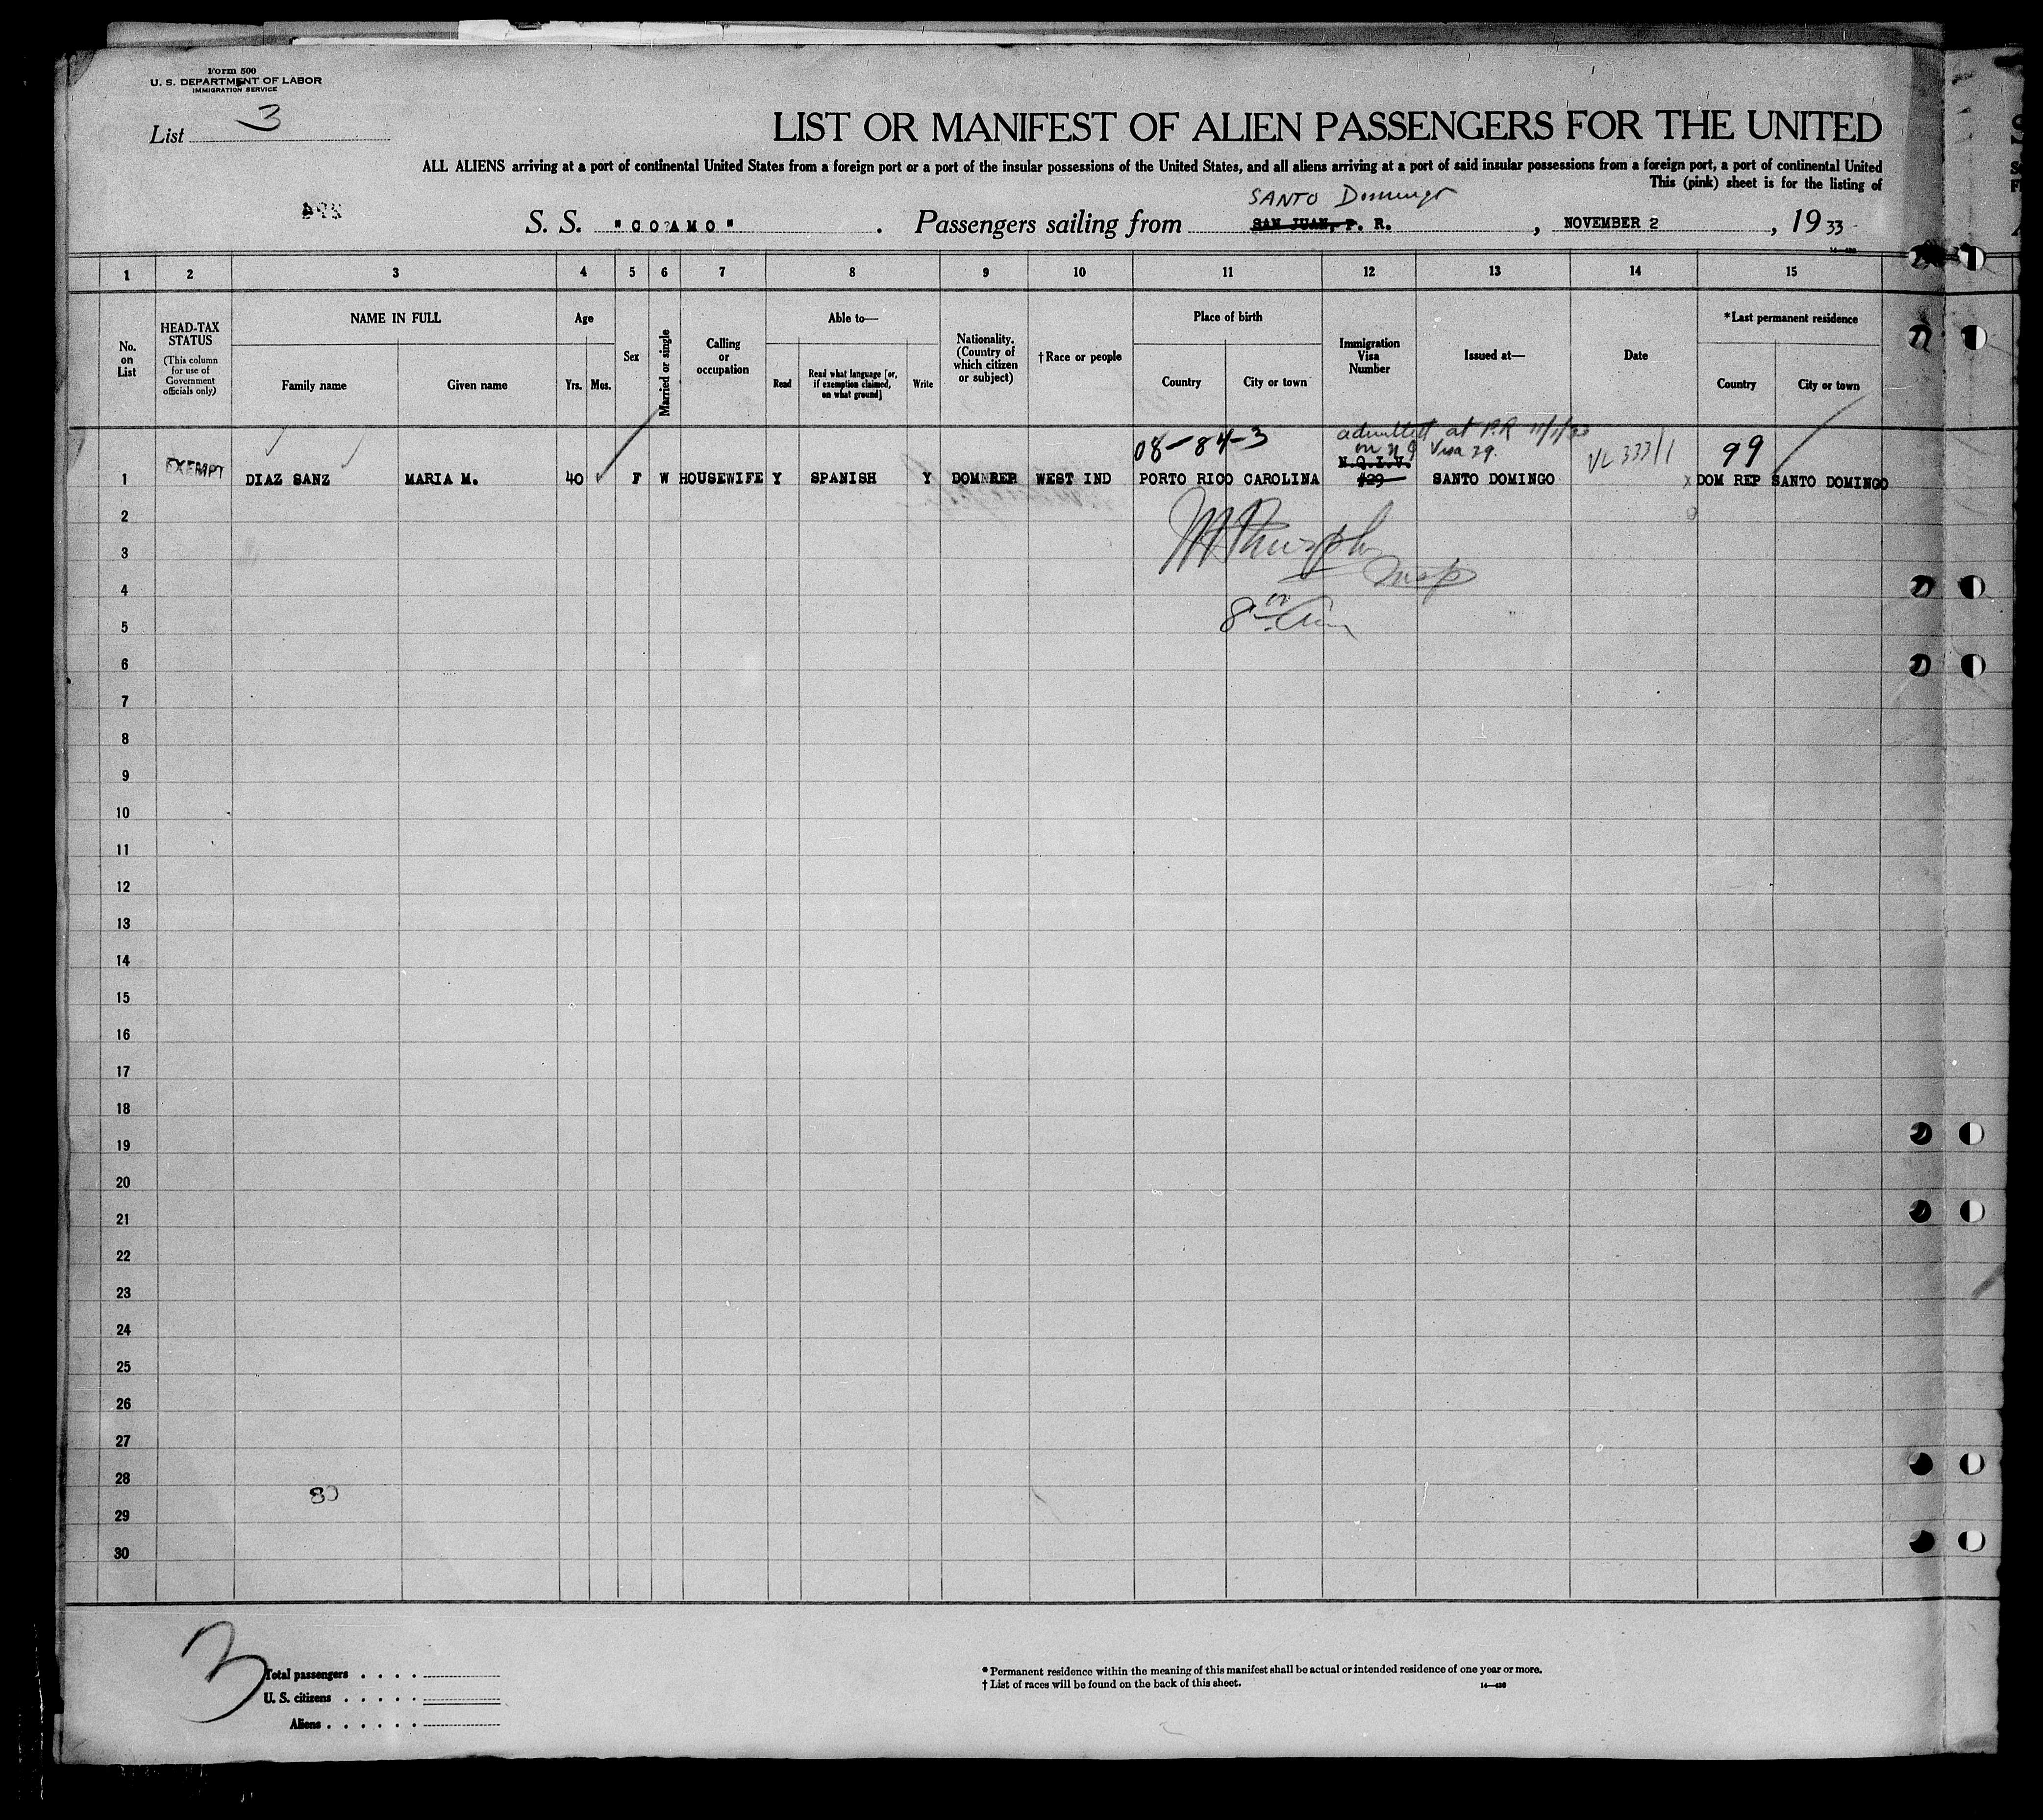 Form 500
U. S. DEPARTMENT OF LABOR
IMMIGRATION SERVICE
List 3
LIST OR MANIFEST OF ALIEN PASSENGERS FOR THE UNITED
ALL ALIENS arriving at a port of continental United States from a foreign port or a port of the insular possessions of the United States, and all aliens arriving at a port of said insular possessions from a foreign port, a port of continental United
This (pink) sheet is for the listing of
SANTO Domingo
S. S. "COAMO". Passengers sailing from SAN JUAN, P. R., NOVEMBER 2, 1933
14—430
1 2 3 4 5 6 7 8 9 10 11 12 13 14 15
No. on List
HEAD-TAX STATUS
(This column for use of Government officials only)
NAME IN FULL
Family name
Given name
Age
Yrs. Mos.
Sex
Married or single
Calling or occupation
Able to—
Read
Read what language [or, if exemption claimed, on what ground]
Write
Nationality. (Country of which citizen or subject)
†Race or people
Place of birth
Country
City or town
Immigration Visa Number
Issued at—
Date
*Last permanent residence
Country
City or town
08-84-3
admitted at P.R 11/1/33
on N Q Visa 29.
99
N.Q.I.V.
1 EXEMPT DIAZ SANZ MARIA M. 40 F W HOUSEWIFE Y SPANISH Y DOM REP WEST IND PORTO RICO CAROLINA #29 SANTO DOMINGO VL 333/1 DOM REP SANTO DOMINGO
2
3
4
5
6
7
8
9
10
11
12
13
14
15
16
17
18
19
20
21
22
23
24
25
26
27
28
80
29
30
3
Total passengers . . . .
U. S. citizens . . . . .
Aliens . . . . . .
* Permanent residence within the meaning of this manifest shall be actual or intended residence of one year or more.
† List of races will be found on the back of this sheet.
14—430